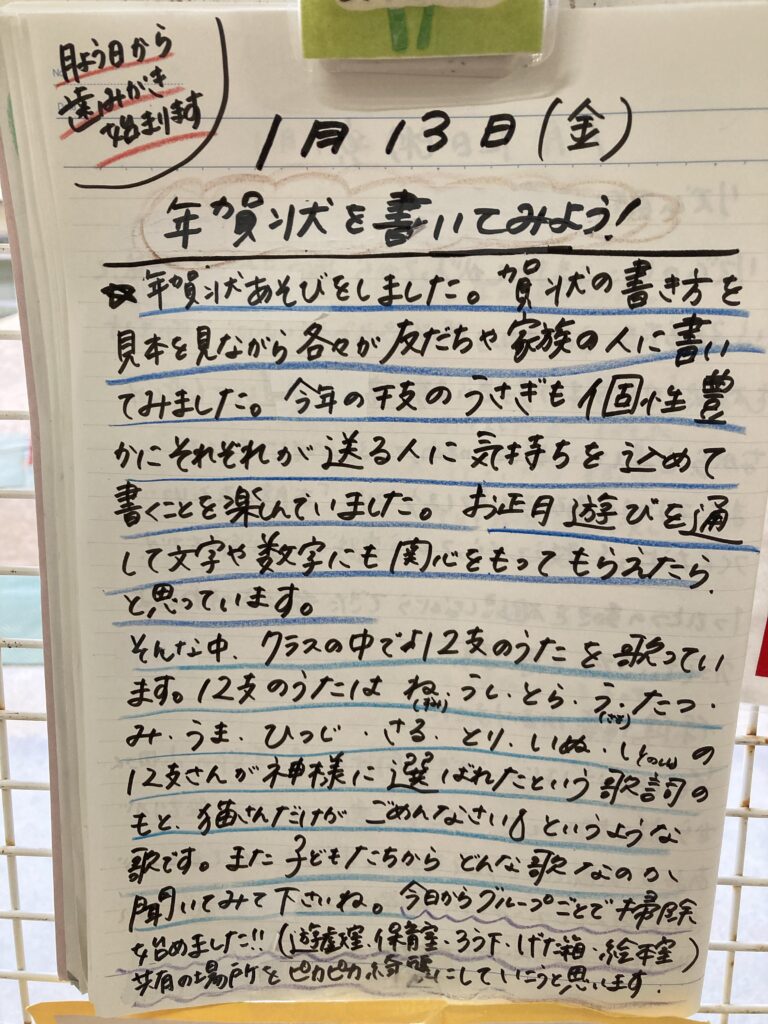 月よう日から
歯みがき
始まります
1月13日(金)
年賀状を書いてみよう!
☆年賀状あそびをしました。賀状の書き方を
見本を見ながら各々が友だちや家族の人に書い
てみました。今年の干支のうさぎも個性豊
かにそれぞれが送る人に気持ちを込めて
書くことを楽しんでいました。お正月遊びを通
して文字や数字にも関心をもってもらえたら
と思っています。
そんな中、クラスの中では12支のうたを歌ってい
ます。12支のうたは ね(ずみ)・うし・とら・う(さぎ)・たつ・
み・うま・ひつじ・さる・とり・いぬ・いの
12支さんが神様に選ばれたという歌詞の
もと、猫さんだけがごめんなさい というような
歌です。また子どもたちからどんな歌なのか
聞いてみて下さいね。今日からグループごとで掃除
始めました!!(遊戯室・保育室・ろう下・げた箱・絵本室)
共有の場所をピカピカ綺麗にしていこうと思います.